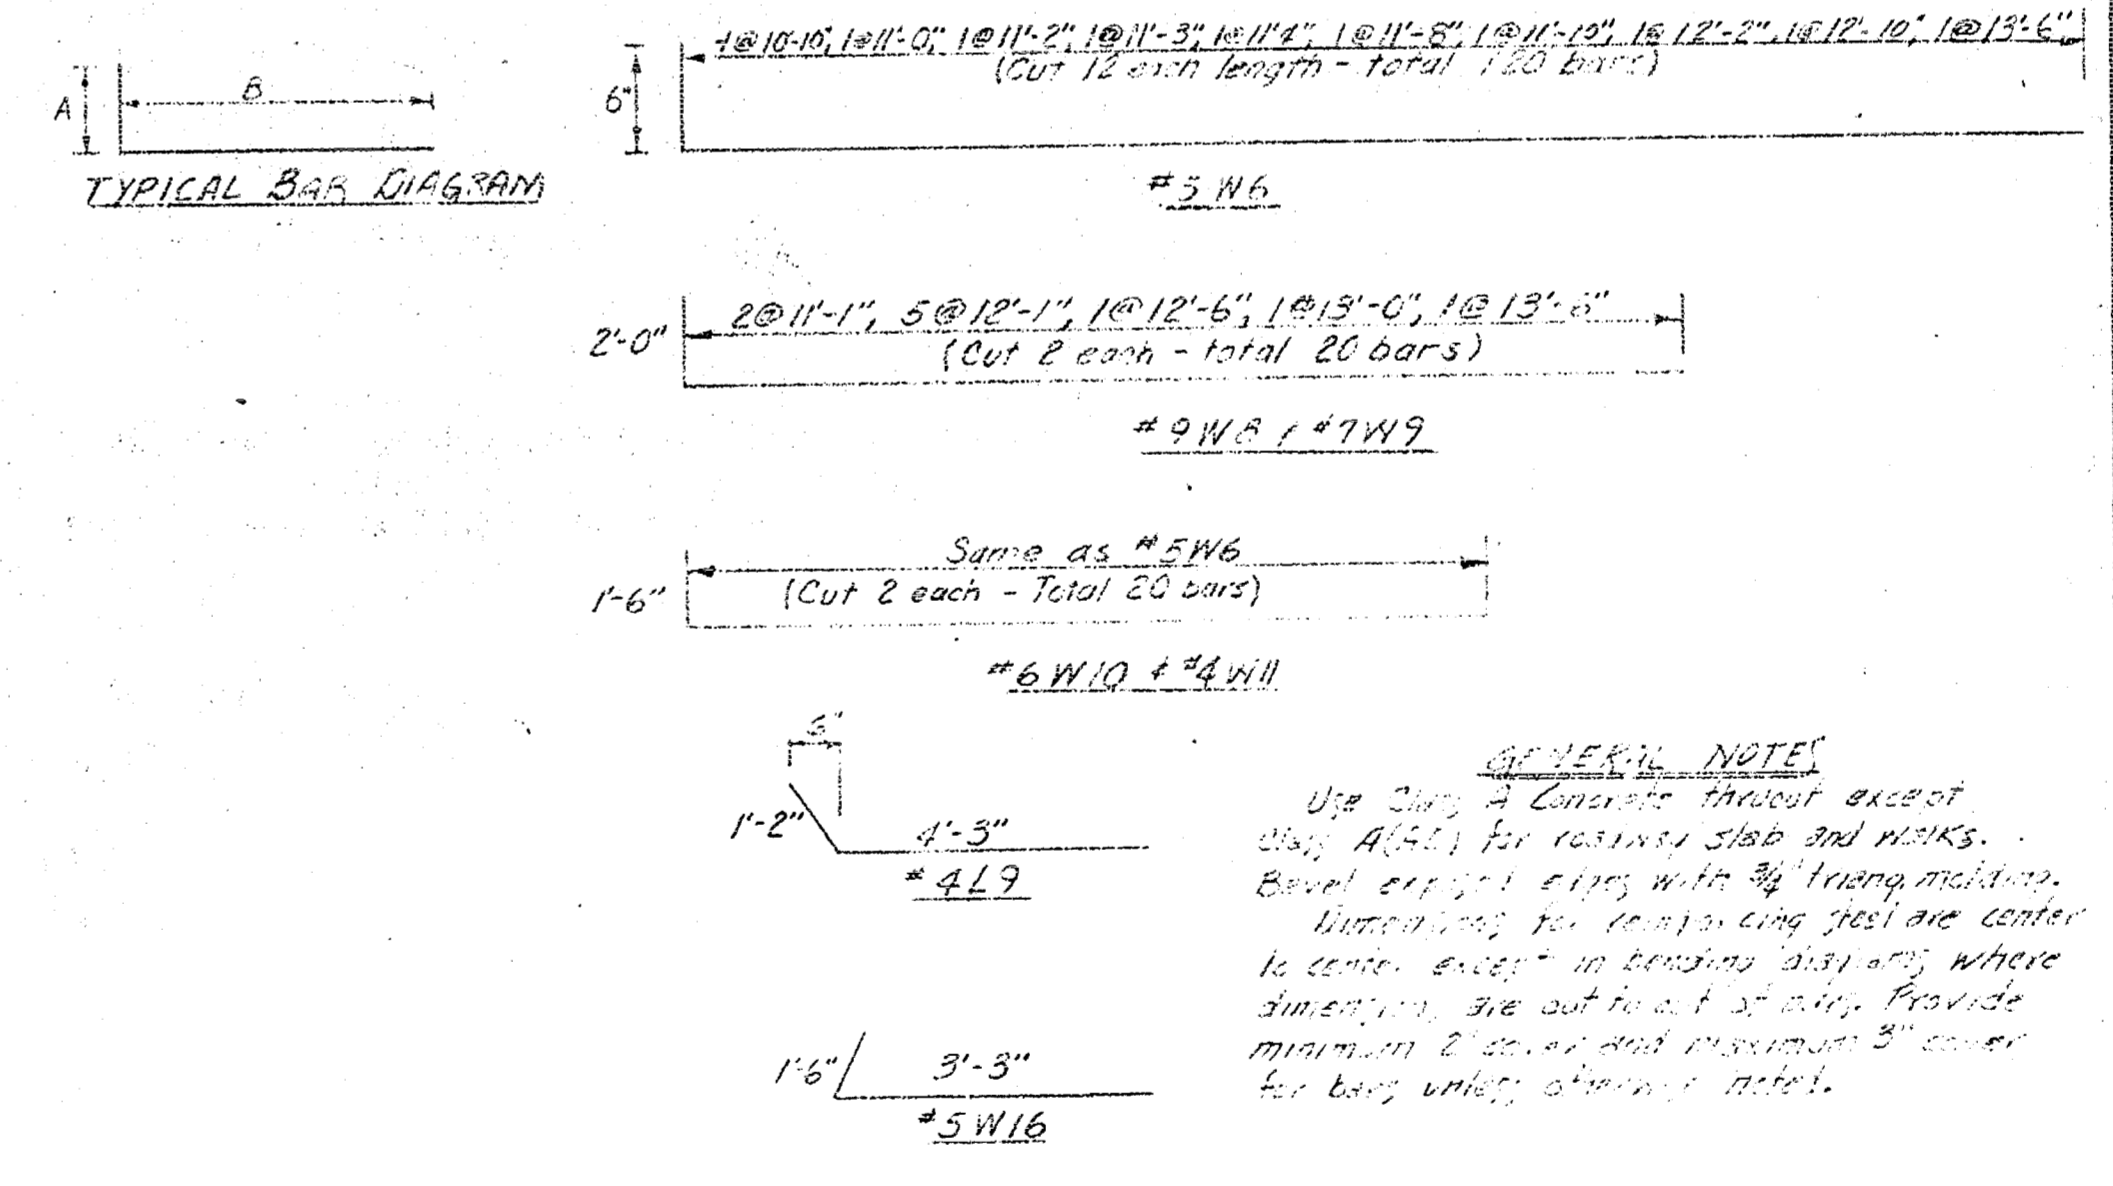 1@10'-10", 1@11'-0", 1@11'-2", 1@11'-3", 1@11'4", 1@11'-8", 1@11'-10", 1@12'-2", 1@12'-10", 1@13'-6"
(Cut 12 each length - total 120 bars)
A
B
6"
TYPICAL BAR DIAGRAM
#5W6
2@11'-1", 5@12'-1", 1@12'-6", 1@13'-0", 1@13'-6"
2'-0"
(Cut 2 each - total 20 bars)
#9W8 & #7W9
Same as #5W6
1'-6"
(Cut 2 each - Total 20 bars)
#6W10 & #4W11
6"
1'-2"
4'-3"
#4L9
1'-6"
3'-3"
#5W16
GENERAL NOTES
Use Class A Concrete thruout except
Class A(AE) for roadway slab and walks.
Bevel exposed edges with 3/4" triang. molding.
Dimensions for reinforcing steel are center
to center except in bending diagrams where
dimensions are out to out of bars. Provide
minimum 2" cover and maximum 3" cover
for bars unless otherwise noted.